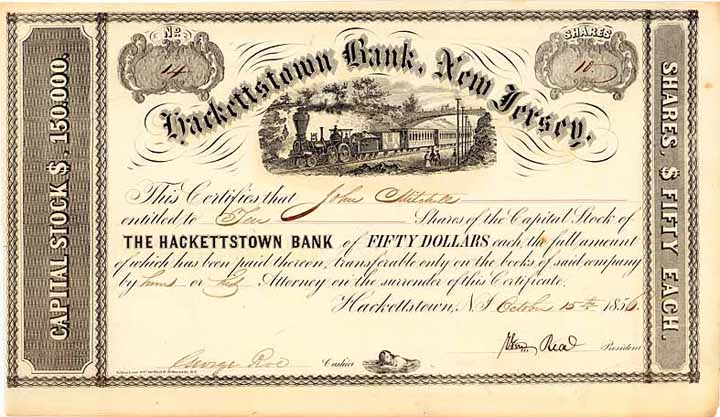 No. SHARES
14 10
Hackettstown Bank, New Jersey.
CAPITAL STOCK $, 150.000.
SHARES, $ FIFTY EACH.
This Certifies that John Mitchell
entitled to Ten Shares of the Capital Stock of
THE HACKETTSTOWN BANK of FIFTY DOLLARS each, the full amount
of which has been paid thereon, transferable only on the books of said company
by him or his Attorney on the surrender of this Certificate.
Hackettstown, N.J. October 15th 1856.
George Roe Cashier Real President